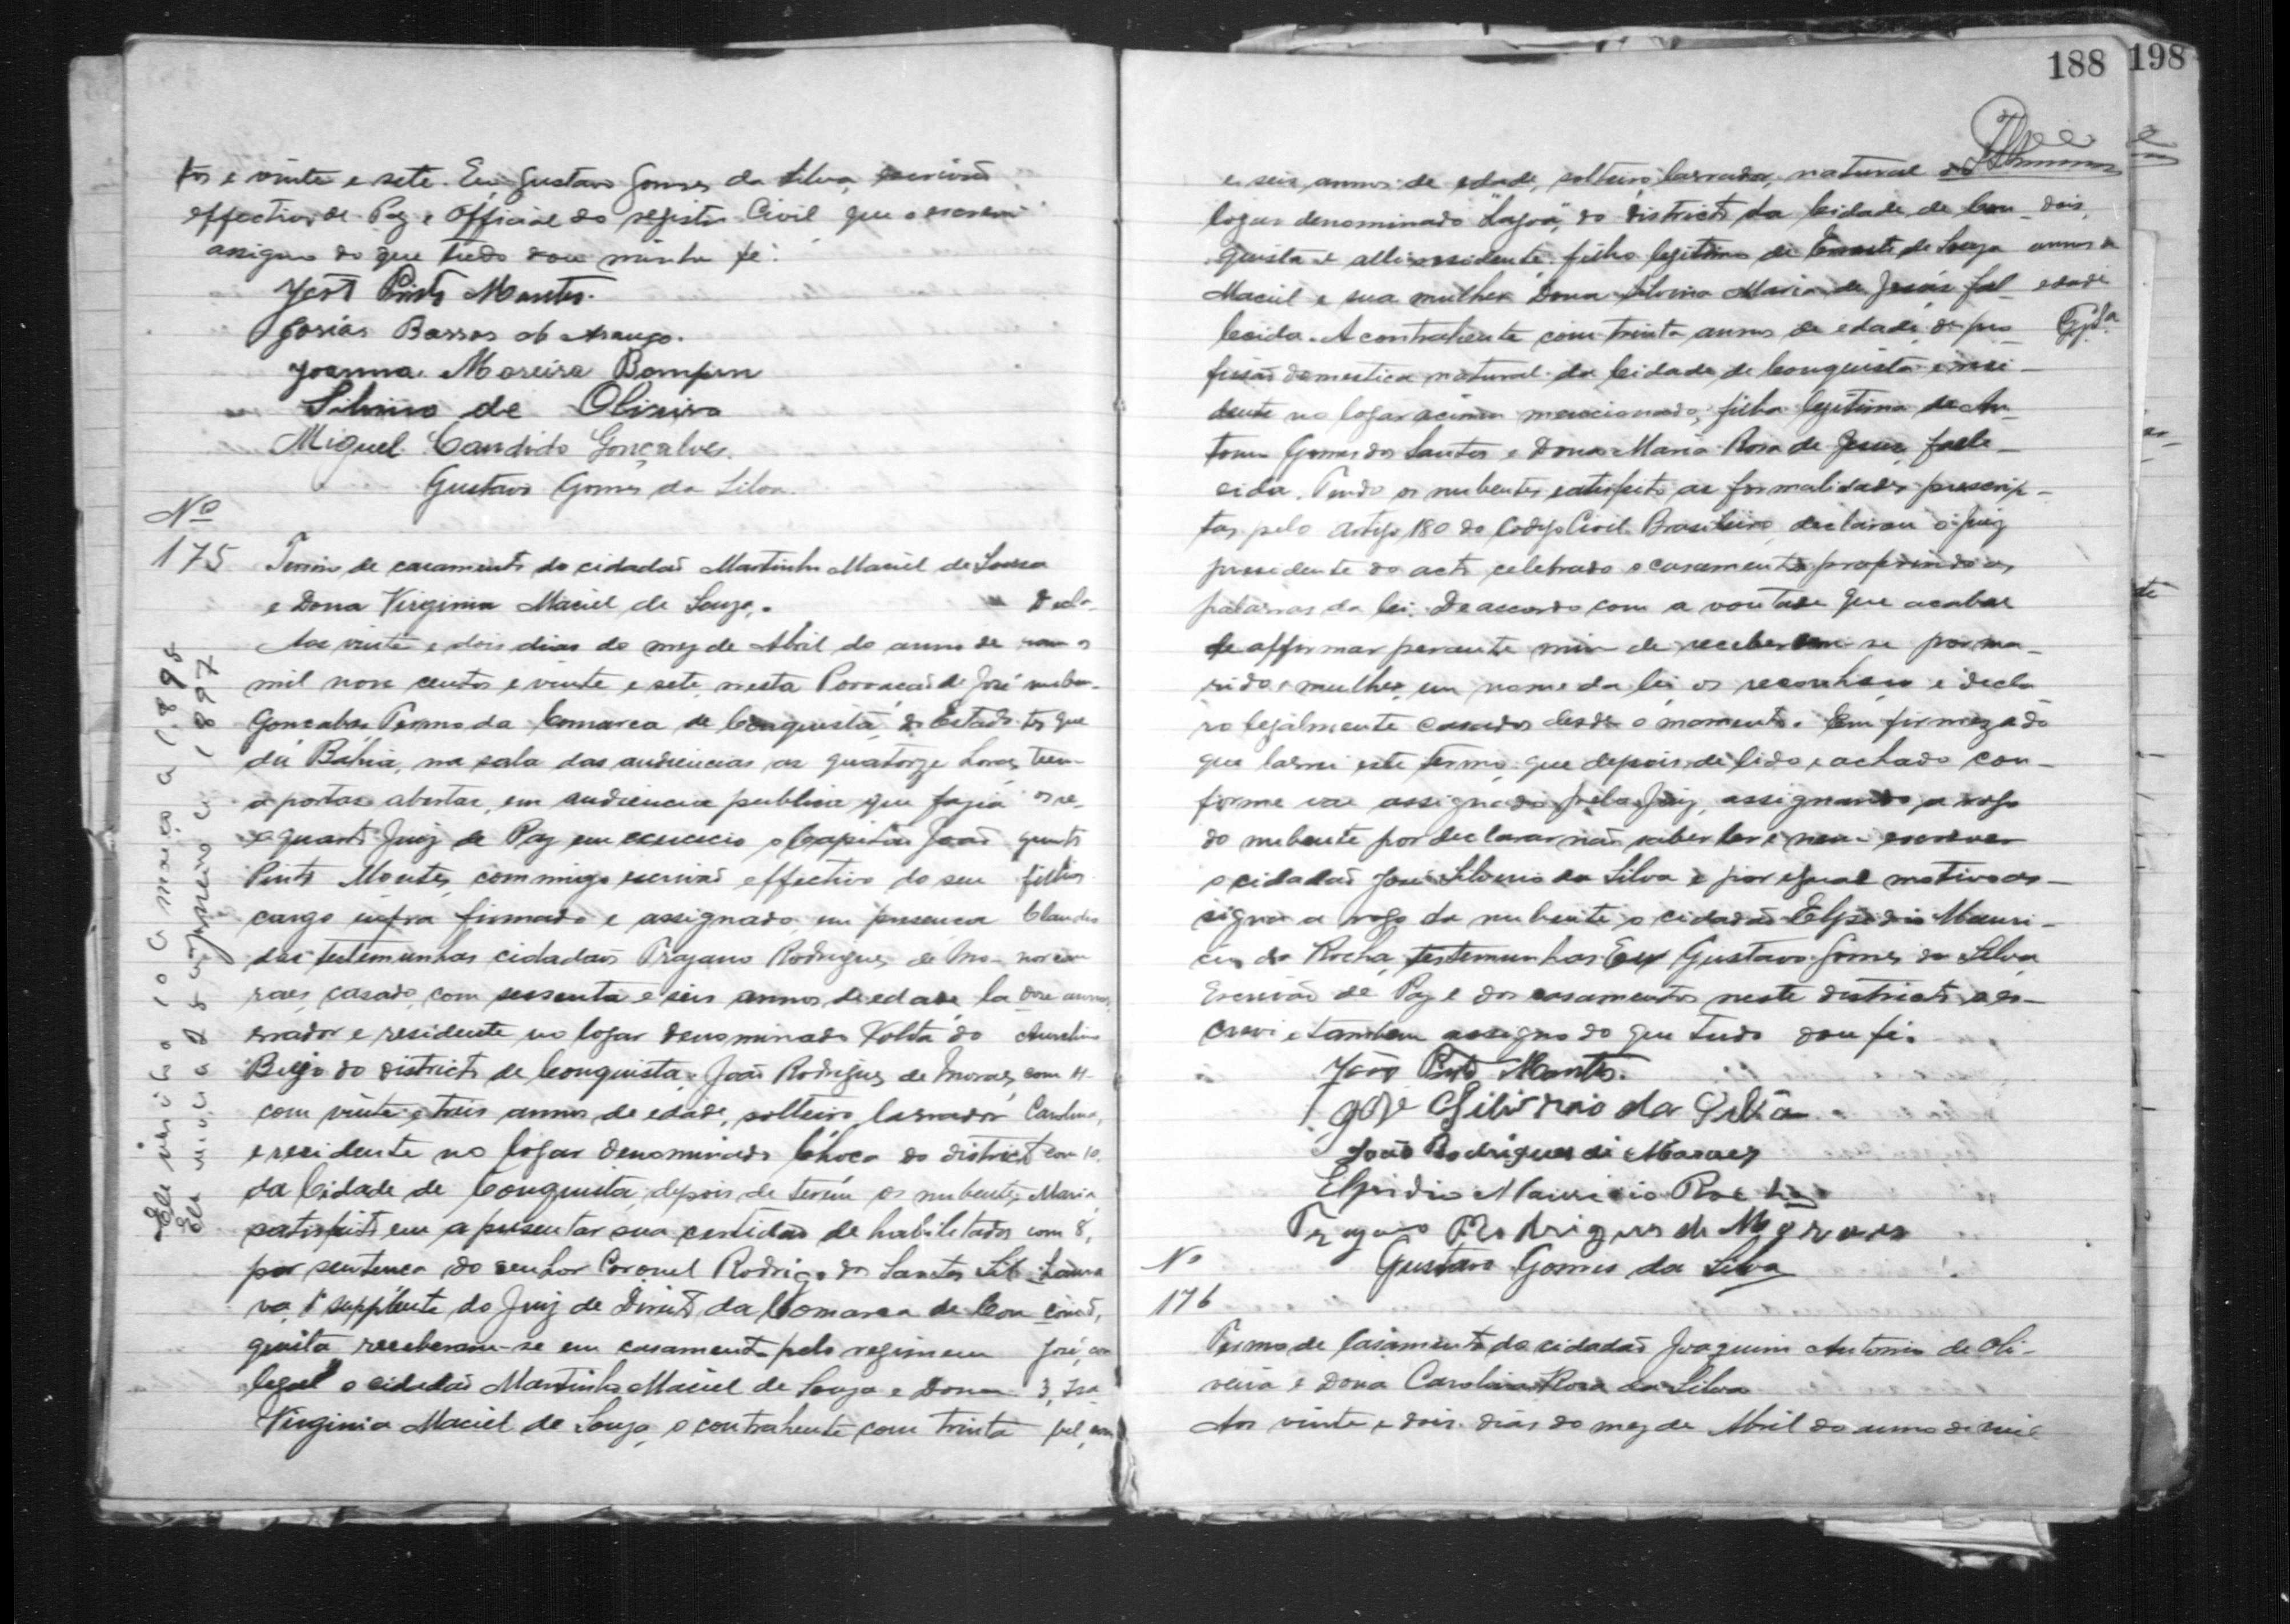 tos e vinte e sete. Eu, Gustavo Gomes da Silva, escrivão
effectivo de Paz e Official do registro Civil que o escrevi
assigno do que tudo dou minha fé.
João Pinto Montes.
Josias Barros de Araujo.
Joanna Moreira Bompim
Silvino de Oliveira
Miguel Candido Gonçalves.
Gustavo Gomes da Silva.
Nº
175
Termo de casamento do cidadão Martinho Maciel de Sousa
e Dona Virginia Maciel de Souza.
Aos vinte e dois dias do mez de Abril do anno de
mil nove centos e vinte e sete, nesta Povoação de José
Gonçalves, Termo da Comarca de Conquista, do Estado
da Bahia, na sala das audiencias as quatorze horas,
a portas abertas, em audiencia publica que fazia
o quarto Juiz de Paz em exercicio o Capitão João
Pinto Montes, commigo escrivão effectivo do seu
cargo infra firmado e assignado, em presença
das testemunhas cidadãos Trajano Rodrigues de Mo-
raes, casado, com sessenta e seis annos de edade, la-
vrador e residente no logar denominado Volta do
Beijo do districto de Conquista, João Rodrigues de Moraes,
com vinte e tres annos de edade, solteiro, lavrador
e residente no logar denominado Choça do districto
da Cidade de Conquista, depois de terem os nubentes
satisfeito em apresentar sua certidão de habilitados
por sentença do senhor Coronel Rodrigo dos Santos Sil-
va, 1º supplente do Juiz de Direito da Comarca de Con-
quista receberam-se em casamento pelo regimem
legal o cidadão Martinho Maciel de Souza e Dona
Virginia Maciel de Souza, o contrahente com trinta
Decla-
ram os
nuben-
tes que
teem
os se-
guintes
filhos
Claudio
nor com
doze annos,
Aurelino
com 11
Carolina,
com 10,
Maria,
com 8,
Laura
cinco,
José, com
3, Iza-
bel, com
Ele nasceu a 10 de março a 1895
Ela nasceu a 28 de janeiro a 1897
188
198
e seis annos de edade, solteiro, lavrador, natural do
logar denominado "Lagoa", do districto da Cidade de Con-
quista e alli residente, filho legitimo de Ernesto de Souza
Maciel e sua mulher Dona Silvina Maria de Jesus, fal-
lecida. A contrahente com trinta annos de edade, de pro-
fissão domestica, natural da Cidade de Conquista e resi-
dente no logar acima mencionado, filha legitima de An-
tonio Gomes dos Santos e Dona Maria Rosa de Jesus, falle-
cida. Tendo os nubentes satisfeito as formalidades prescrip-
tas pelo artigo 180 do Codigo Civil Brasileiro, declarou o Juiz
presidente do acto celebrado o casamento proferindo as
palavras da lei. De accordo com a vontade que acabaes
de affirmar perante mim de receberem-se por ma-
rido e mulher, em nome da lei os reconheço e decla-
ro legalmente casados desde o momento. Em firmeza do
que lavrei este termo que depois de lido e achado con-
forme vae assignado pelo Juiz, assignando a rogo
do nubente por declarar não saber ler e nem escrever
o cidadão José Silverio da Silva e por egual motivo as-
signa a rogo da nubente o cidadão Elpidio Mauri-
cio da Rocha, testemunhas Eu Gustavo Gomes da Silva
Escrivão de Paz e dos casamentos neste districto o es-
crevi e tambem assigno do que tudo dou fé.
dois,
annos de
edade
João Pinto Montes.
José Silverio da Silva
João Rodrigues de Moraes
Elpidio Mauricio Rocha
Trajano Rodrigues de Moraes
Gustavo Gomes da Silva
Nº
176
Termo de Casamento do cidadão Joaquim Antonio de Oli-
veira e Dona Carolina Rosa da Silva
Aos vinte e dois dias do mez de Abril do anno de mil